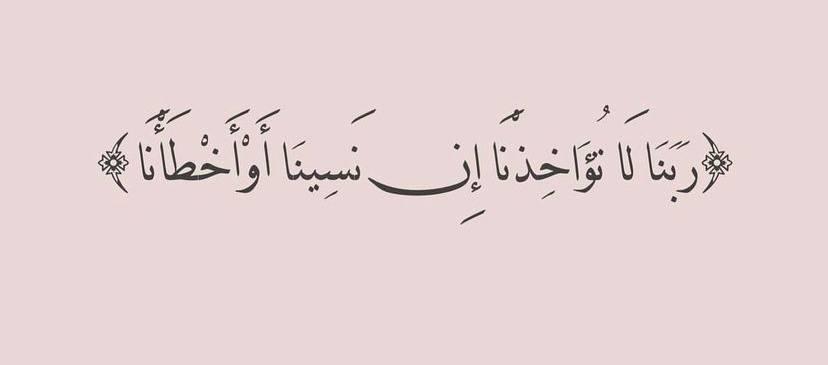 ﴿رَبَّنَا لَا تُؤَاخِذْنَا إِن نَسِينَا أَوْ أَخْطَأْنَا﴾